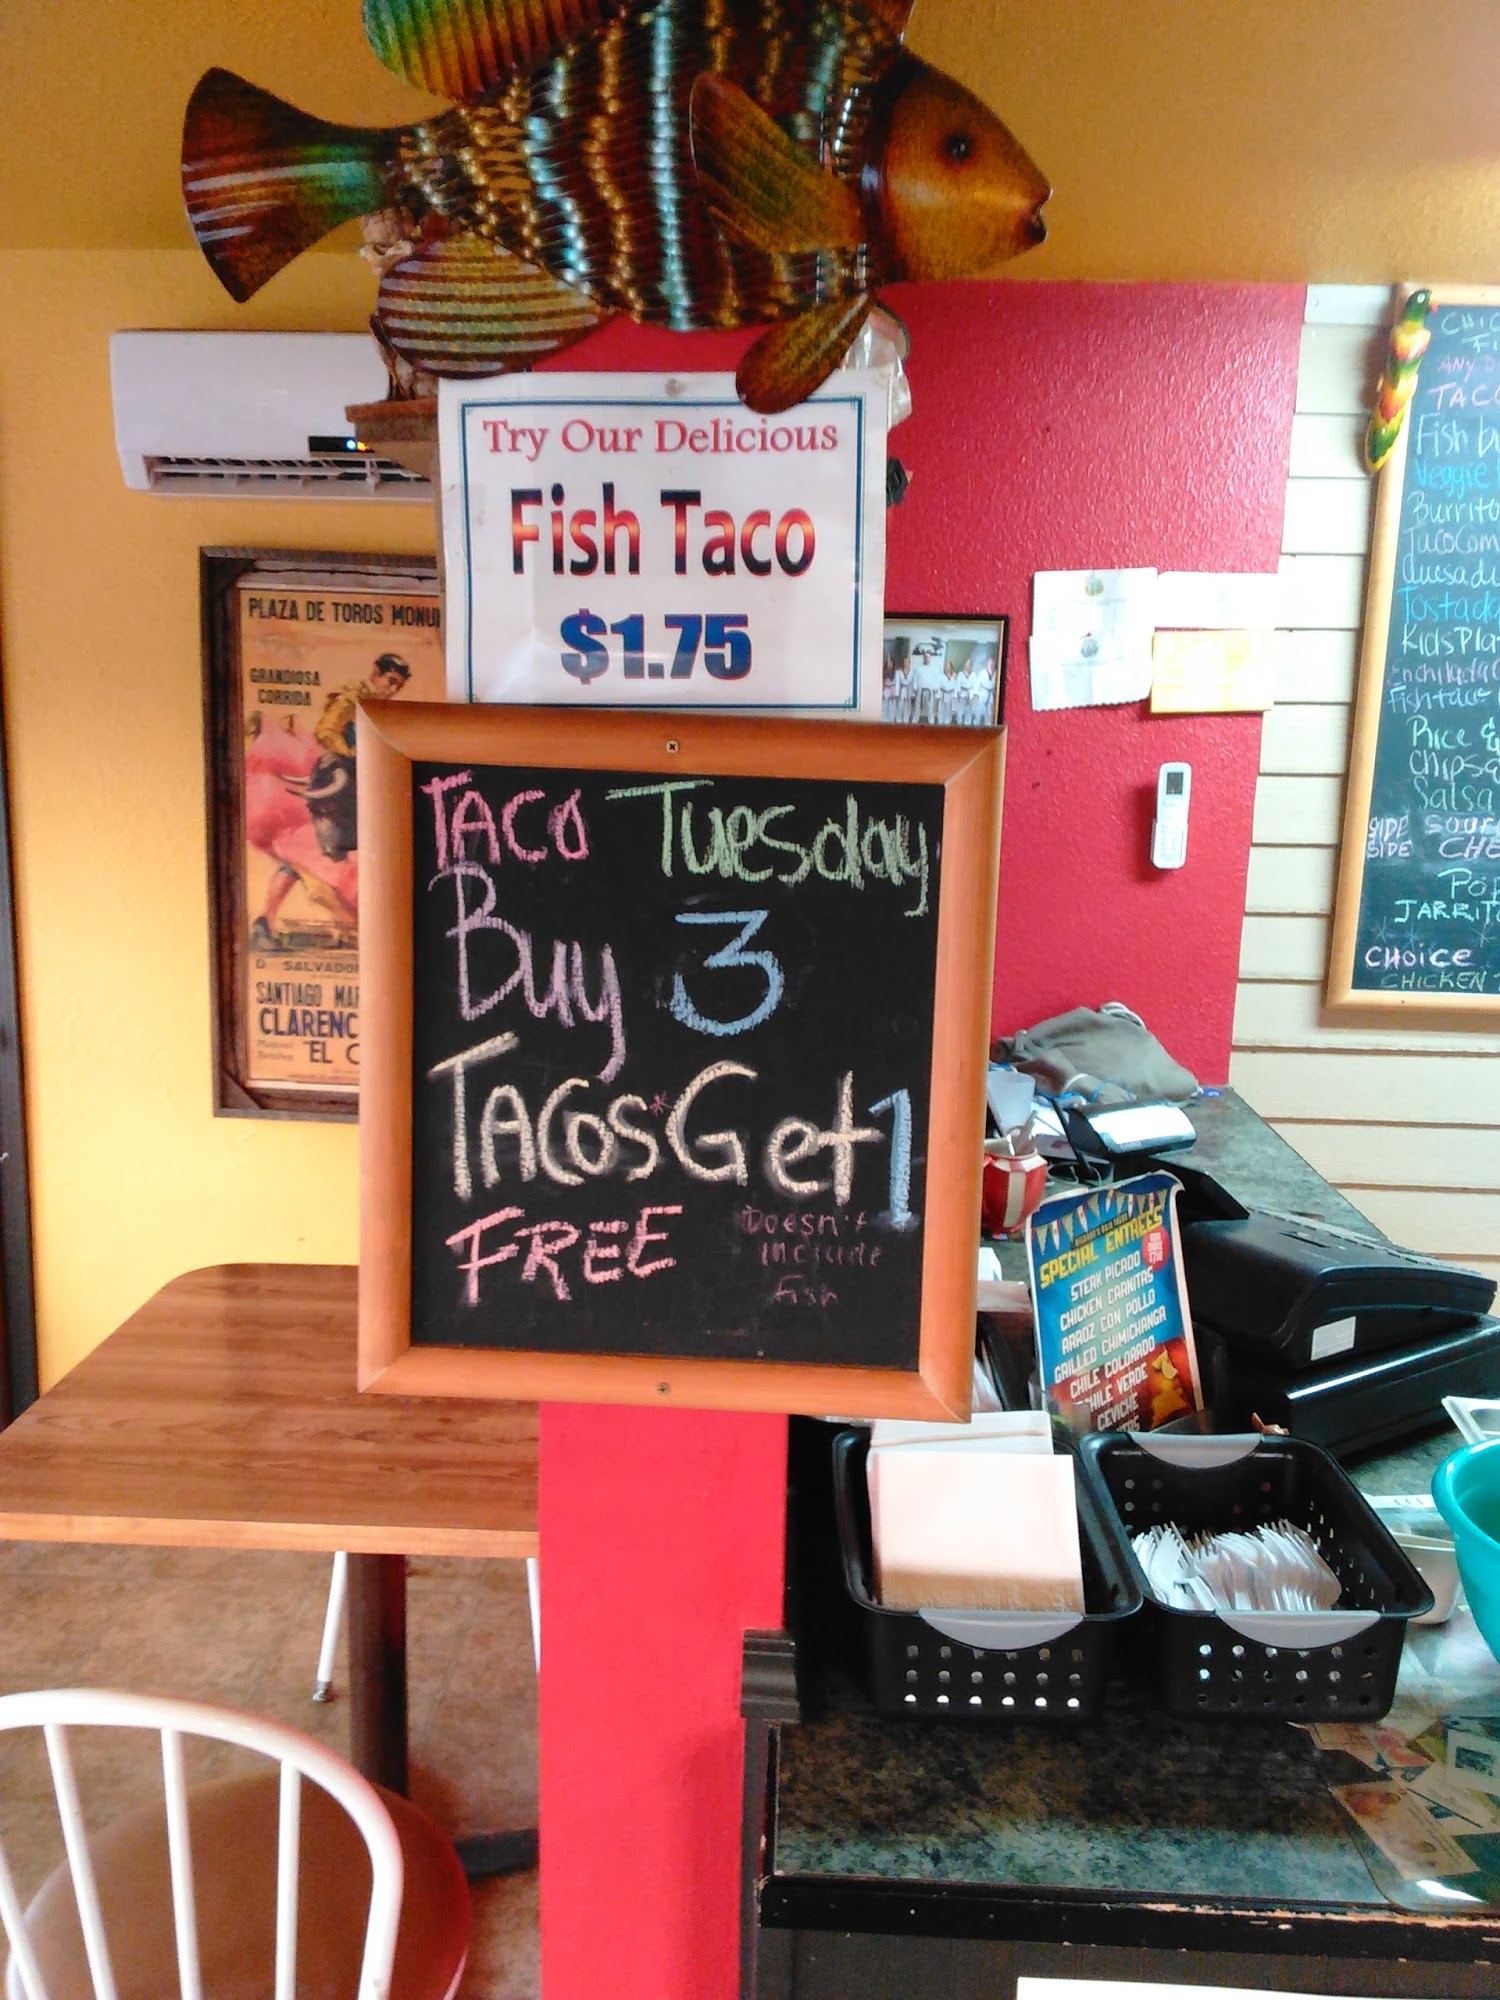 Try Our Delicious
Fish Taco
$1.75
TACO Tuesday
Buy 3
TACOS* Get 1
FREE
Doesn't
include
fish
PLAZA DE TOROS
GRANDIOSA
CORRIDA
D. SALVADOR
SANTIAGO
CLARENC
"EL C
SPECIAL ENTREES
STEAK PICADO
CHICKEN CARNITAS
ARROZ CON POLLO
GRILLED CHIMICHANGA
CHILE COLORADO
CHILE VERDE
CEVICHE
ANY
TACO
Fish
Veggie
Burrito
Taco Com
Quesad
Tostada
Kids Pla
Enchilada
Fish taco
Rice &
Chips
Salsa
SIDE SOUR
SIDE CHE
POP
JARRITO
CHOICE
CHICKEN